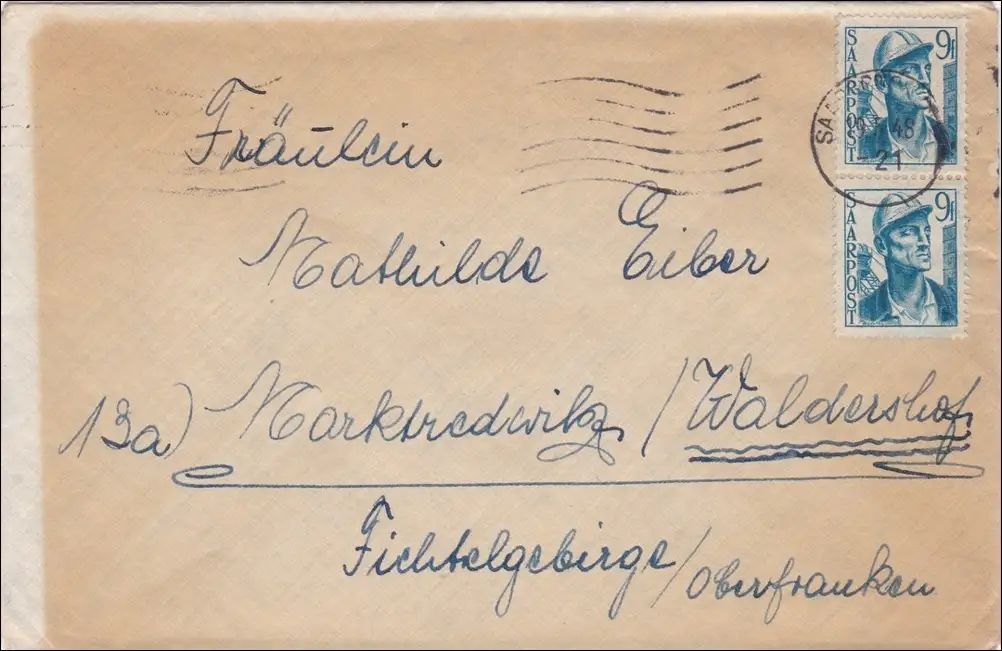 SAARPOST 9f
48
-21
SAARPOST 9f
Fräulein
Mathilde Eiber
13a) Marktredwitz / Waldershof
Fichtelgebirge / Oberfranken